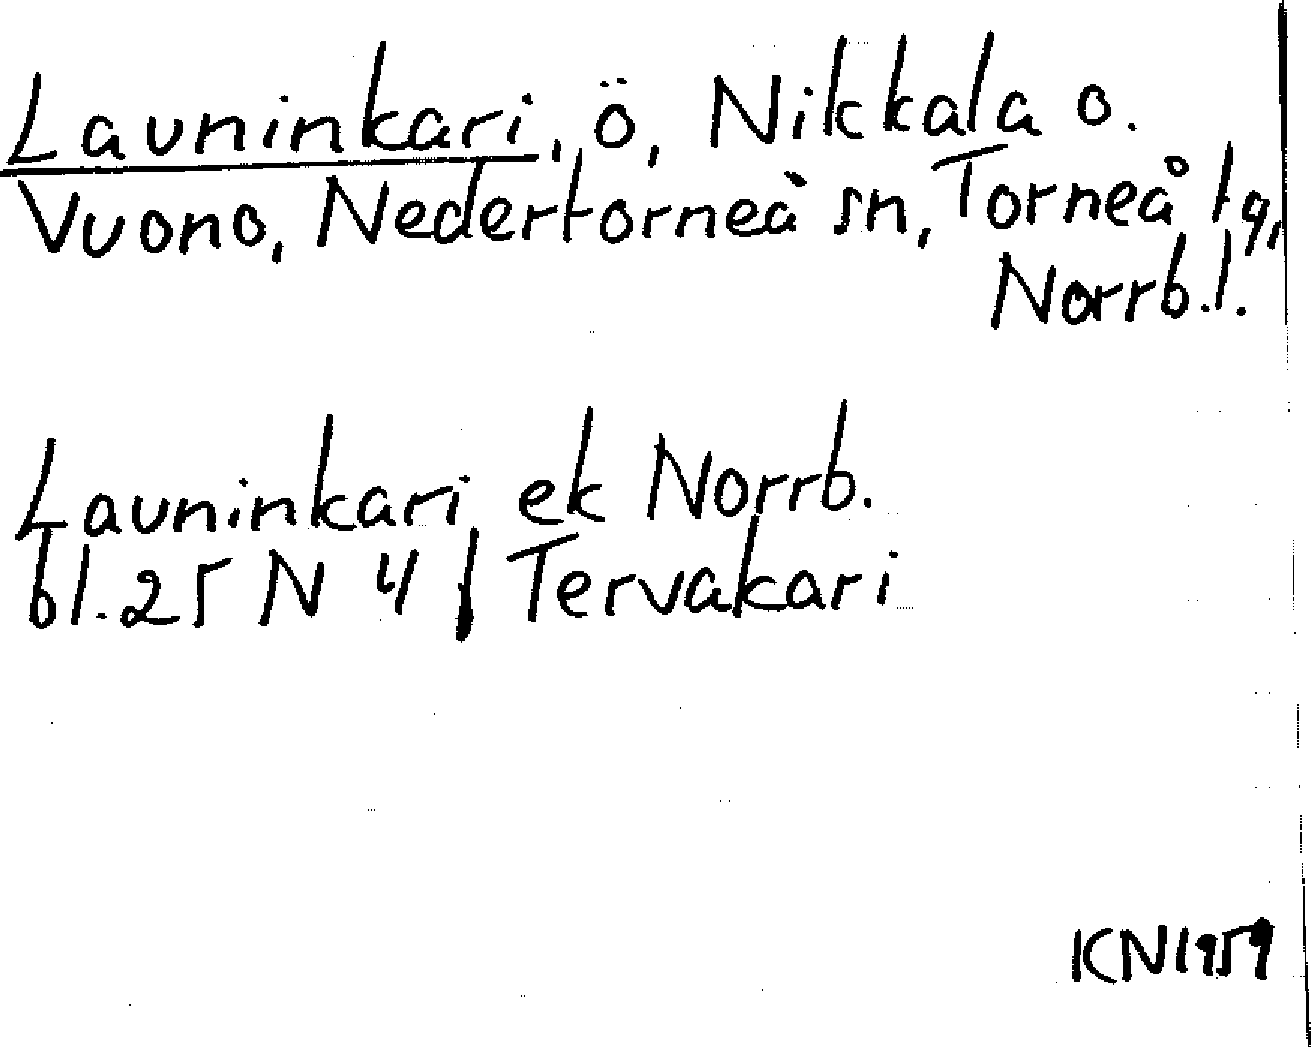 Launinkari, ö, Nikkala o.
Vuono, Nedertorneå sn, Torneå tg,
Norrb. l.
Launinkari, ek Norrb.
bl. 25 N 4 f Tervakari
KN 1959